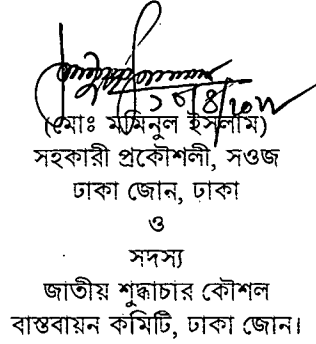 (মোঃ মমিনুল ইসলাম)
সহকারী প্রকৌশলী, সওজ
ঢাকা জোন, ঢাকা
ও
সদস্য
জাতীয় শুদ্ধাচার কৌশল
বাস্তবায়ন কমিটি, ঢাকা জোন।